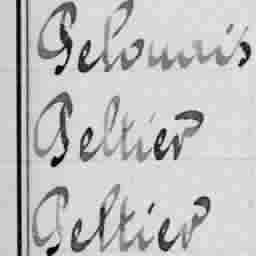 Pelouais
Peltier
Peltier